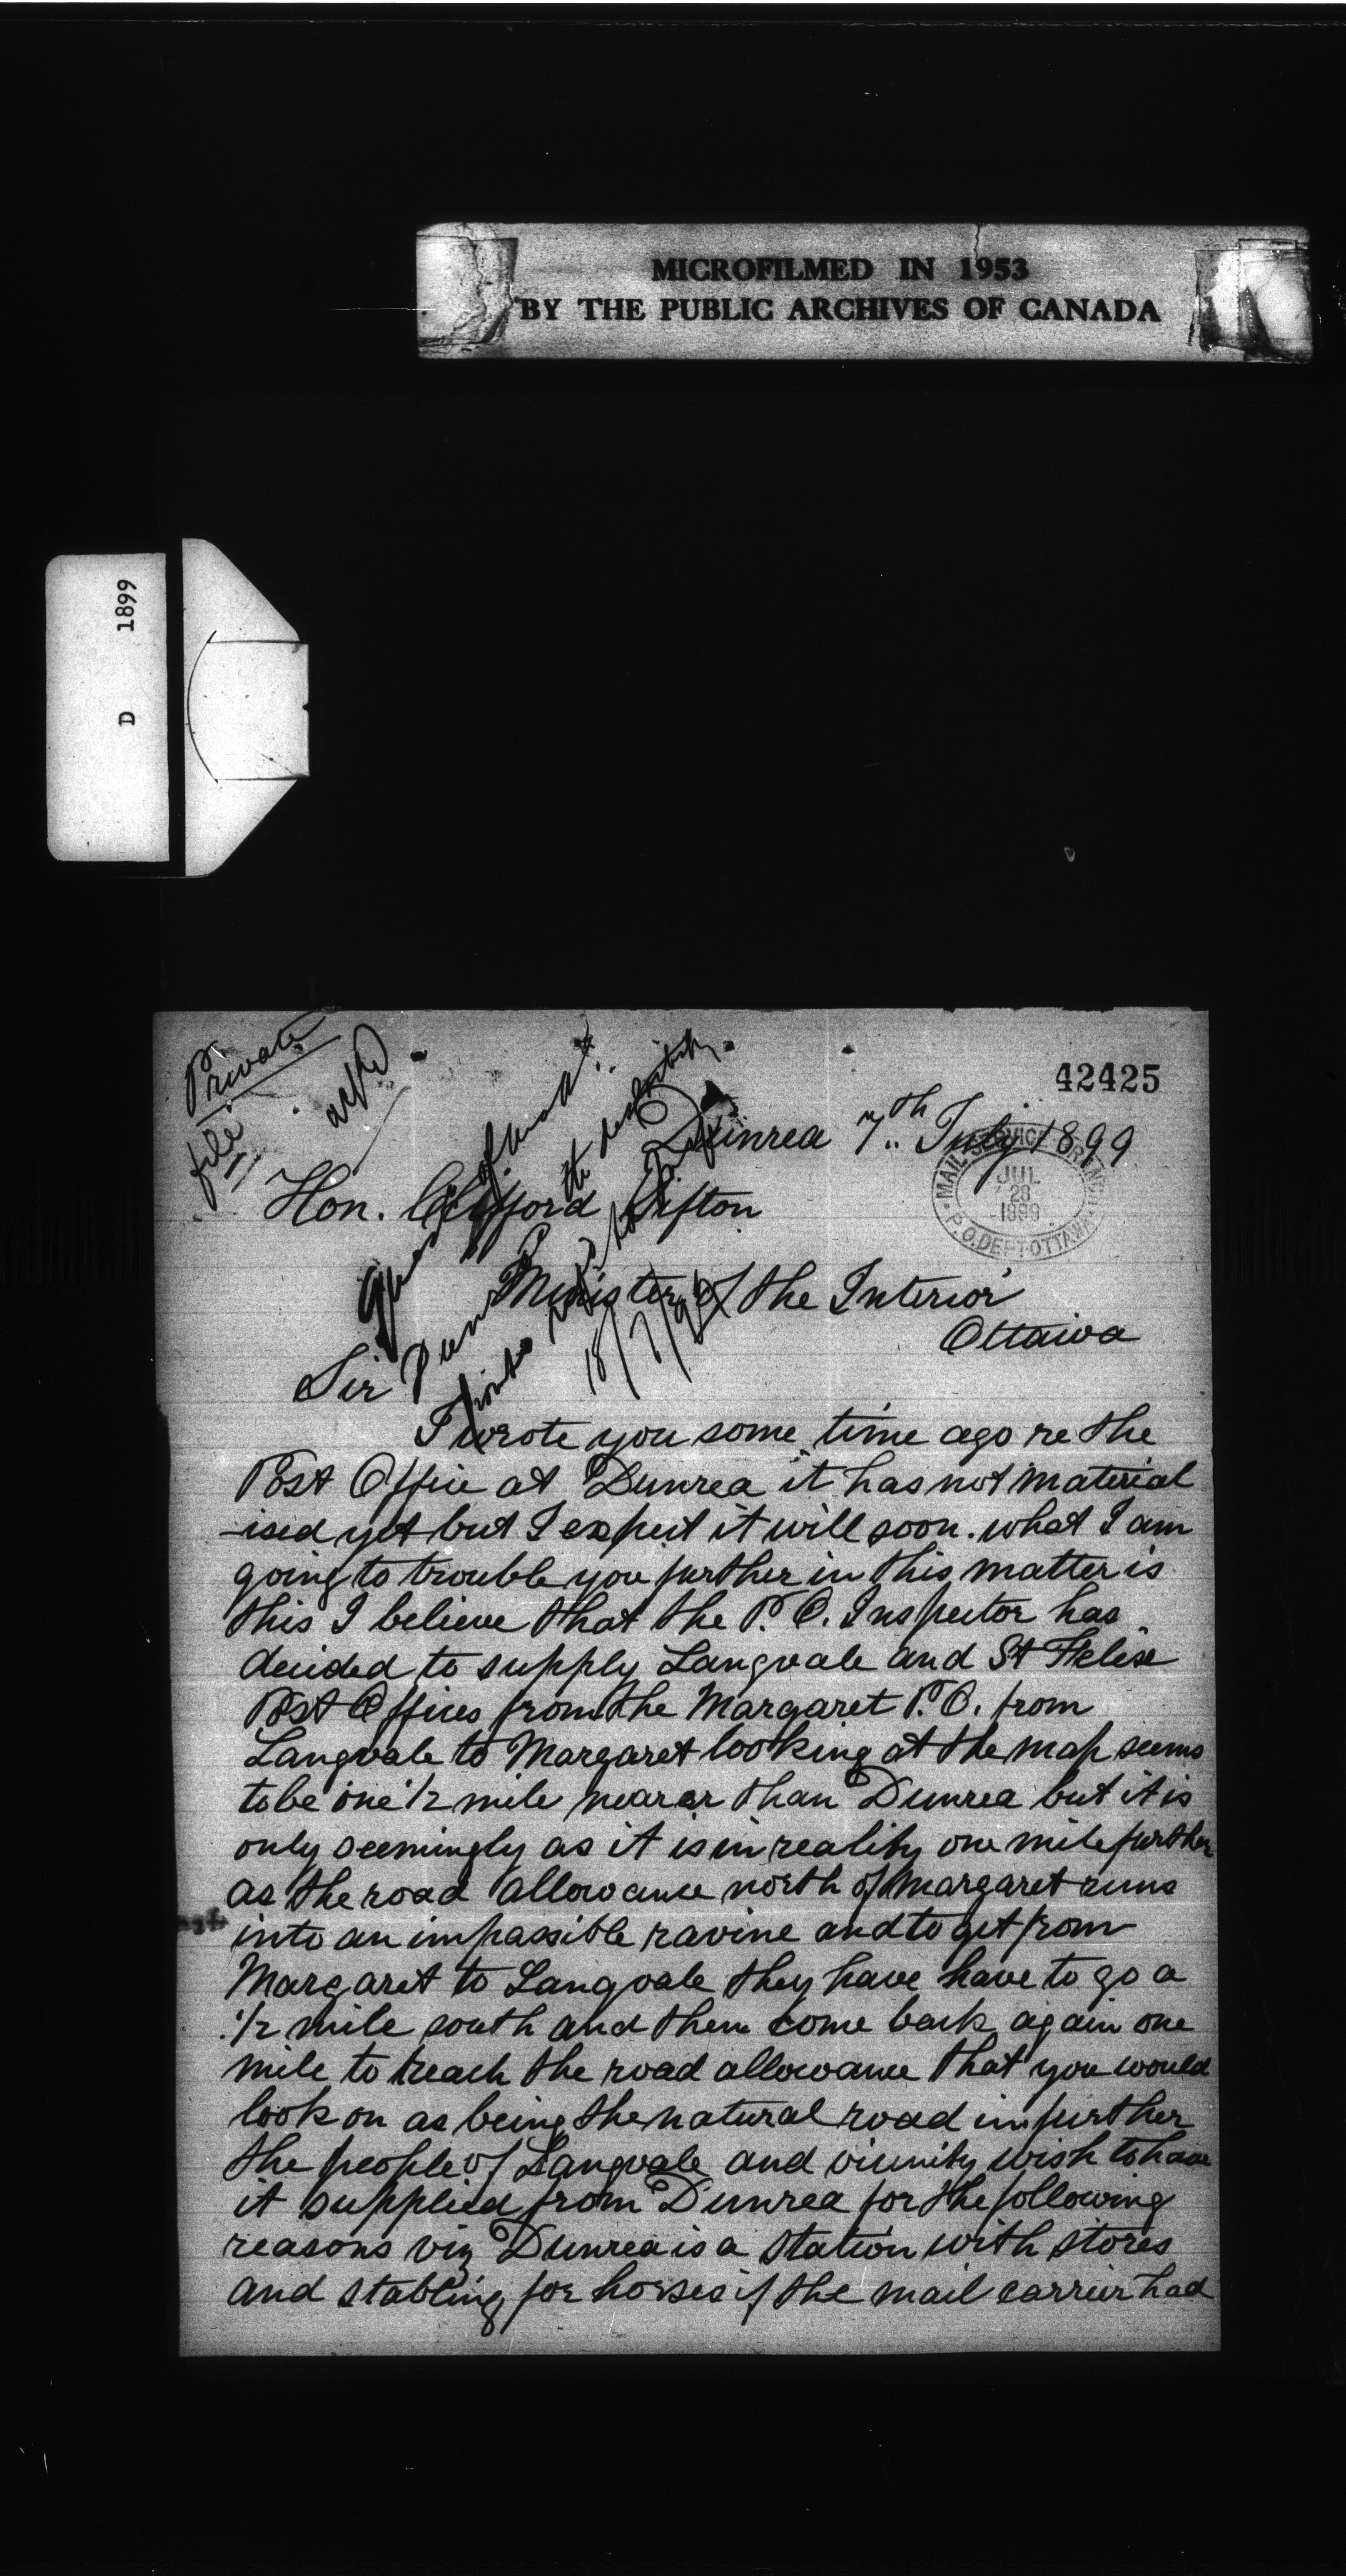 MICROFILMED IN 1953
BY THE PUBLIC ARCHIVES OF CANADA
D 1899
Private
file
ack'd
42425
Dunrea 7th July 1899
MAIL SERVICE BRANCH
JUL
28
1899
P.O. DEPT OTTAWA
Hon. Clifford Sifton
Minister of the Interior
Ottawa
18/7/99
Sir
I wrote you some time ago re the
Post Office at Dunrea it has not material
-ised yet but I expect it will soon. what I am
going to trouble you further in this matter is
this I believe that the P. O. Inspector has
decided to supply Langvale and St Felise
Post Offices from the Margaret P. O. from
Langvale to Margaret looking at the map seems
to be one 1/2 mile nearer than Dunrea but it is
only seemingly as it is in reality one mile further
as the road allowance north of Margaret runs
into an impassible ravine and to get from
Margaret to Langvale they have have to go a
1/2 mile south and then come back again one
mile to reach the road allowance that you would
look on as being the natural road in further
the people of Langvale and vicinity wish to have
it supplied from Dunrea for the following
reasons viz Dunrea is a station with stores
and stabling for horses if the mail carrier had